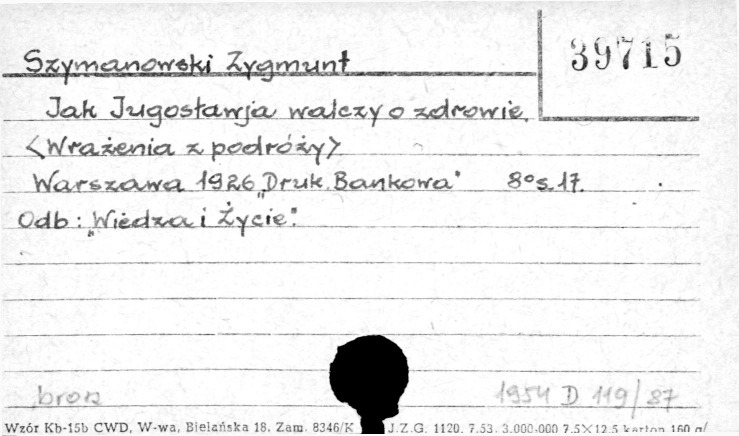 39715
Szymanowski Zygmunt
Jak Jugosławja walczy o zdrowie.
<Wrażenia z podróży>
Warszawa 1926 „Druk. Bankowa" 8° s. 17.
Odb: „Wiedza i Życie".
brosz
1954 D 119/87
Wzór Kb-15b CWD, W-wa, Bielańska 18. Zam. 8346/K J.Z.G. 1120. 7.53. 3.000.000 7.5×12.5 karton 160 g/